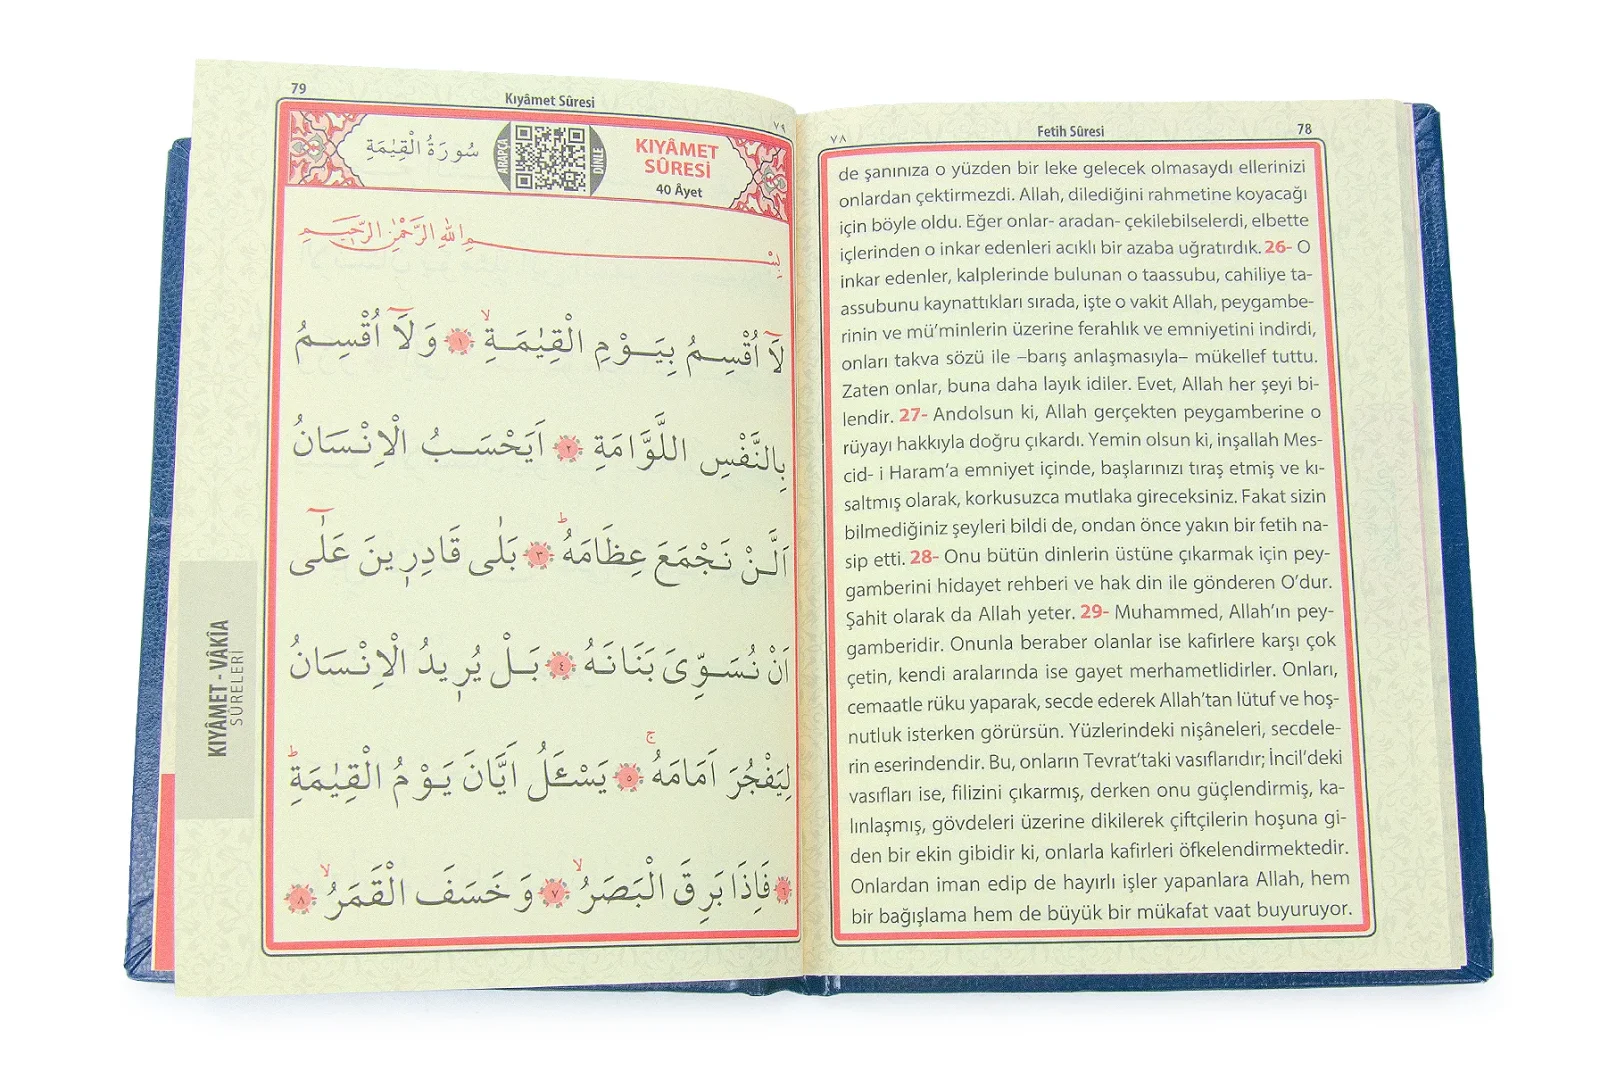 ٧٨
Fetih Sûresi
78
de şanınıza o yüzden bir leke gelecek olmasaydı ellerinizi
onlardan çektirmezdi. Allah, dilediğini rahmetine koyacağı
için böyle oldu. Eğer onlar- aradan- çekilebilselerdi, elbette
içlerinden o inkar edenleri acıklı bir azaba uğratırdık. 26- O
inkar edenler, kalplerinde bulunan o taassubu, cahiliye ta-
assubunu kaynattıkları sırada, işte o vakit Allah, peygambe-
rinin ve mü’minlerin üzerine ferahlık ve emniyetini indirdi,
onları takva sözü ile –barış anlaşmasıyla– mükellef tuttu.
Zaten onlar, buna daha layık idiler. Evet, Allah her şeyi bi-
lendir. 27- Andolsun ki, Allah gerçekten peygamberine o
rüyayı hakkıyla doğru çıkardı. Yemin olsun ki, inşallah Mes-
cid- i Haram’a emniyet içinde, başlarınızı tıraş etmiş ve kı-
saltmış olarak, korkusuzca mutlaka gireceksiniz. Fakat sizin
bilmediğiniz şeyleri bildi de, ondan önce yakın bir fetih na-
sip etti. 28- Onu bütün dinlerin üstüne çıkarmak için pey-
gamberini hidayet rehberi ve hak din ile gönderen O’dur.
Şahit olarak da Allah yeter. 29- Muhammed, Allah’ın pey-
gamberidir. Onunla beraber olanlar ise kafirlere karşı çok
çetin, kendi aralarında ise gayet merhametlidirler. Onları,
cemaatle rüku yaparak, secde ederek Allah’tan lütuf ve hoş-
nutluk isterken görürsün. Yüzlerindeki nişâneleri, secdele-
rin eserindendir. Bu, onların Tevrat’taki vasıflarıdır; İncil’deki
vasıfları ise, filizini çıkarmış, derken onu güçlendirmiş, ka-
lınlaşmış, gövdeleri üzerine dikilerek çiftçilerin hoşuna gi-
den bir ekin gibidir ki, onlarla kafirleri öfkelendirmektedir.
Onlardan iman edip de hayırlı işler yapanlara Allah, hem
bir bağışlama hem de büyük bir mükafat vaat buyuruyor.
79
Kıyâmet Sûresi
٧٩
KIYÂMET
SÛRESİ
40 Âyet
ARAPÇA
DİNLE
سُورَةُ الْقِيٰمَةِ
بِسْمِ اللهِ الرَّحْمٰنِ الرَّحِيمِ
لَٓا اُقْسِمُ بِيَوْمِ الْقِيٰمَةِۙ ١ وَلَٓا اُقْسِمُ
بِالنَّفْسِ اللَّوَّامَةِ ٢ اَيَحْسَبُ الْاِنْسَانُ
اَلَّنْ نَجْمَعَ عِظَامَهُۜ ٣ بَلٰى قَادِرٖينَ عَلٰٓى
اَنْ نُسَوِّىَ بَنَانَهُ ٤ بَلْ يُرٖيدُ الْاِنْسَانُ
لِيَفْجُرَ اَمَامَهُۚ ٥ يَسْـَٔلُ اَيَّانَ يَوْمُ الْقِيٰمَةِۜ
٦ فَاِذَا بَرِقَ الْبَصَرُۙ ٧ وَخَسَفَ الْقَمَرُۙ ٨
KIYÂMET - VÂKÎA
SÛRELERİ